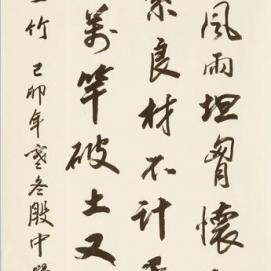 風雨坦胸懷
良材不計
萬竿破土又
竹 己卯年寒冬殷中